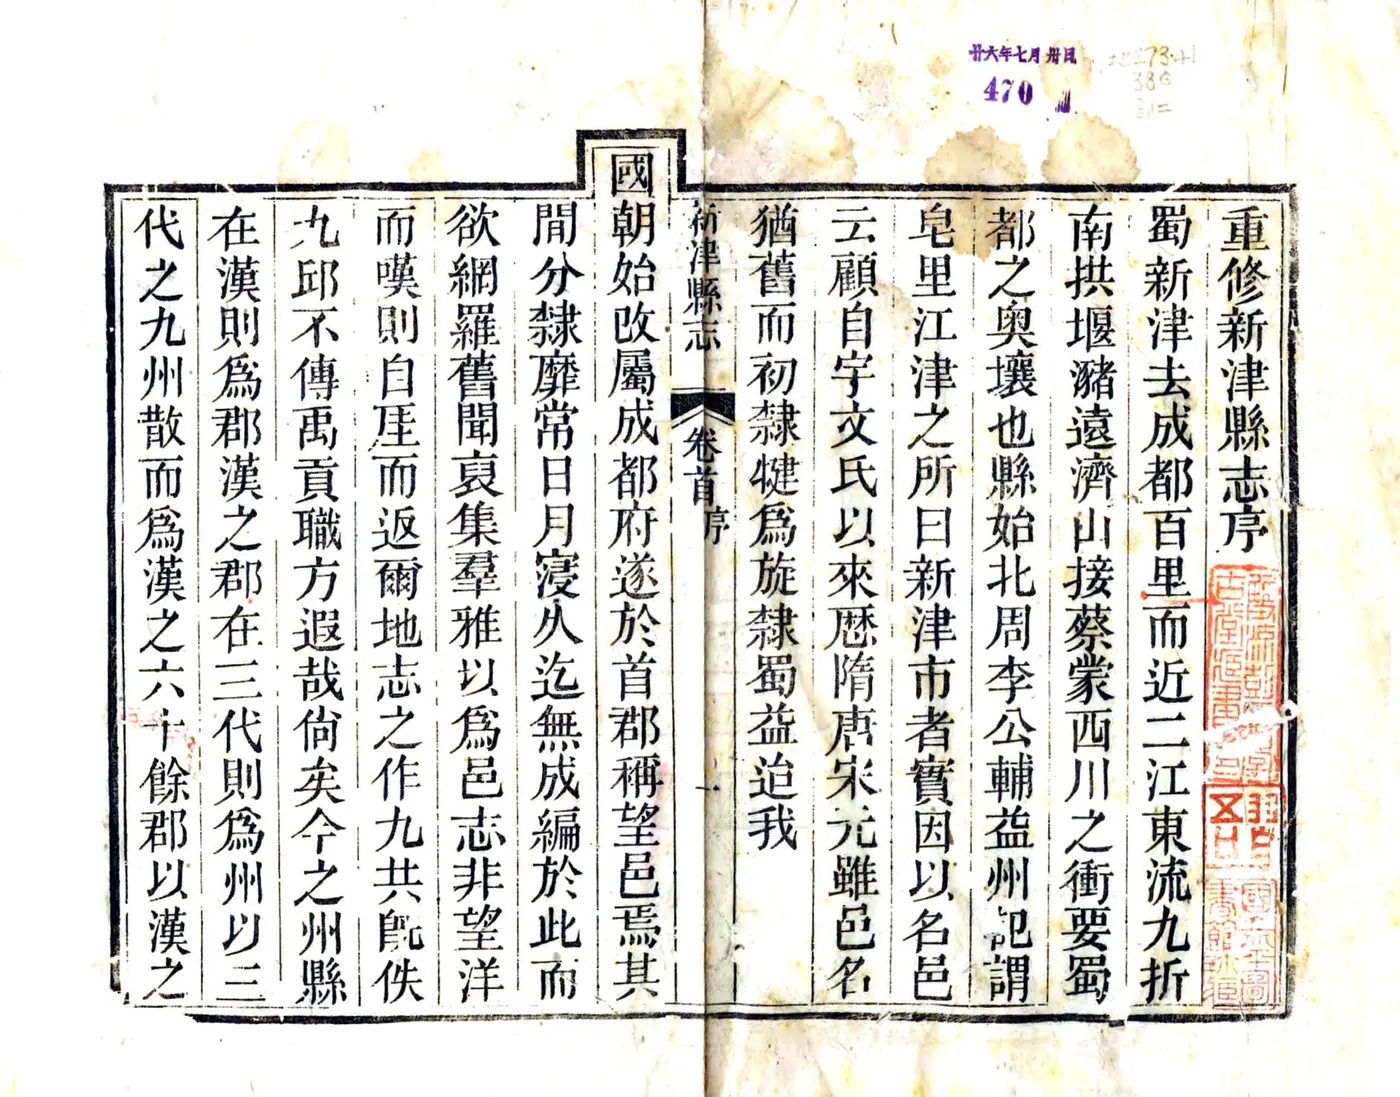 重修新津縣志序
蜀新津去成都百里而近二江東流九折
南拱堰瀦遠濟山接蔡蒙西川之衝要蜀
都之奧壤也縣始北周李公輔益州記謂
皂里江津之所曰新津市者實因以名邑
云顧自宇文氏以來歷隋唐宋元雖邑名
猶舊而初隸犍爲旋隸蜀益迨我
新津縣志
卷首
序
一
國朝始改屬成都府遂於首郡稱望邑焉其
間分隸靡常日月寖久迄無成編於此而
欲網羅舊聞裒集羣雅以爲邑志非望洋
而嘆則自厓而返爾地志之作九共旣佚
九邱不傳禹貢職方遐哉尙矣今之州縣
在漢則爲郡漢之郡在三代則爲州以三
代之九州散而爲漢之六十餘郡以漢之
廿六年七月卅日
470
273.41